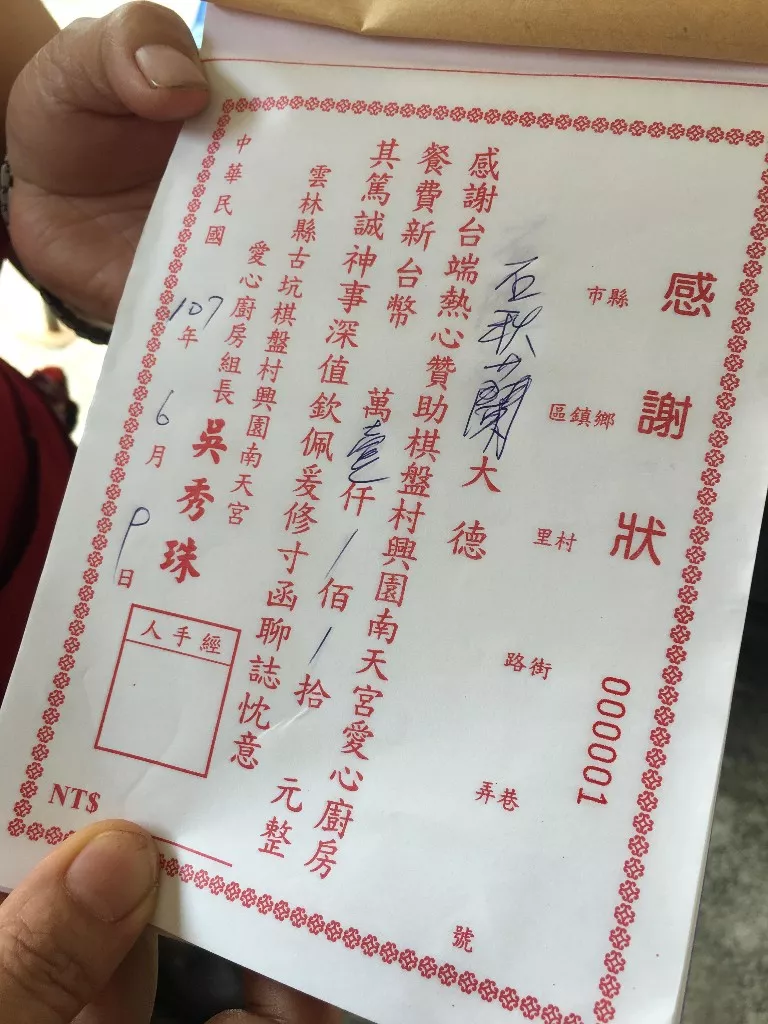 感謝狀
000001
縣市
鄉鎮區
村里
街路
巷弄
號
石秋蘭大德
感謝台端熱心贊助棋盤村興園南天宮愛心廚房
餐費新台幣 萬壹仟/佰/拾 元整
其篤誠神事深值欽佩爰修寸函聊誌忱意
雲林縣古坑棋盤村興園南天宮
愛心廚房組長 吳秀珠
中華民國107年6月9日
經手人
NT$